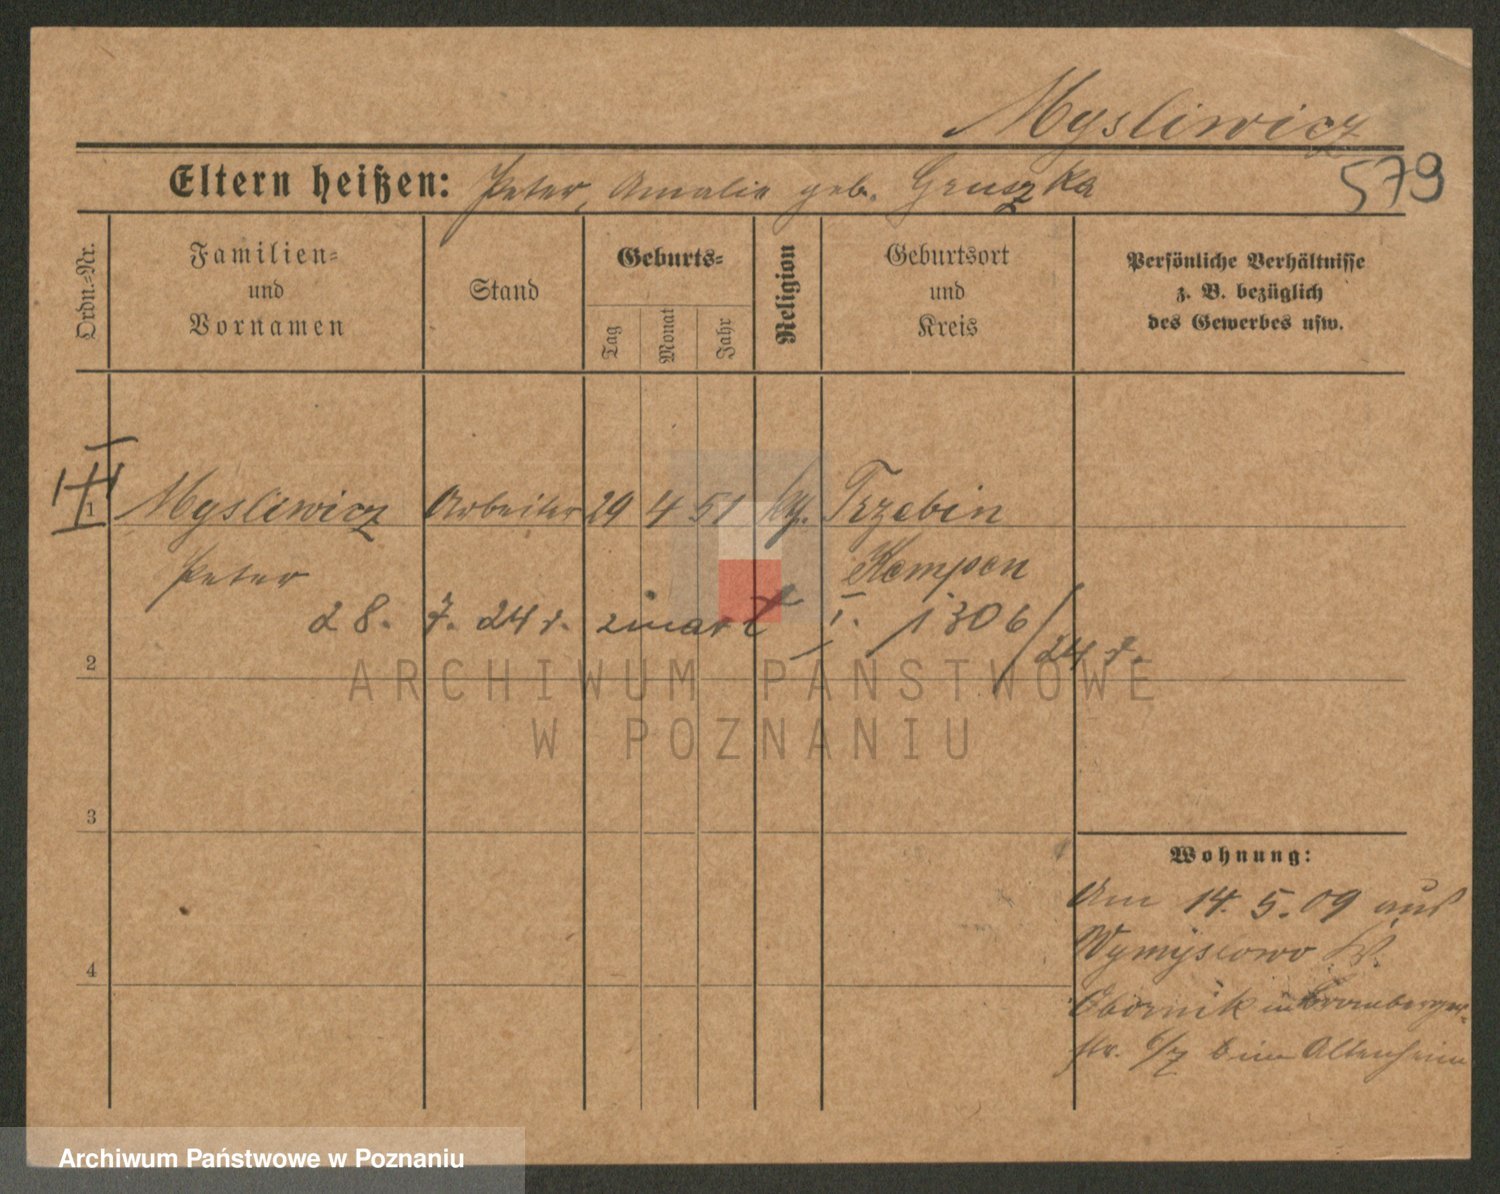 Mysliwicz
579
Eltern heißen: Peter, Amalie geb. Gruszka
Ordn.-Nr.
Familien-
und
Vornamen
Stand
Geburts-
Tag
Monat
Jahr
Religion
Geburtsort
und
Kreis
Persönliche Verhältnisse
z. B. bezüglich
des Gewerbes usw.
1
Mysliwicz Arbeiter 29 4 51 Trzebin
Peter Kempen
28. 7. 24 r. zmarł 1306/24 r.
2
ARCHIWUM PAŃSTWOWE
W POZNANIU
3
4
Wohnung:
Am 14. 5. 09 aus
Wymyslowo
Obornik in Bromberger-
str. 6/7 beim Altenheim
Archiwum Państwowe w Poznaniu